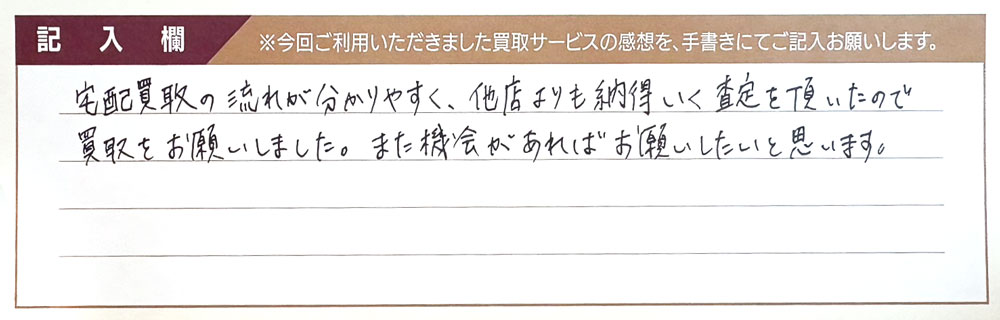 記入欄
※今回ご利用いただきました買取サービスの感想を、手書きにてご記入お願いします。
宅配買取の流れが分かりやすく、他店よりも納得いく査定を頂いたので
買取をお願いしました。また機会があればお願いしたいと思います。